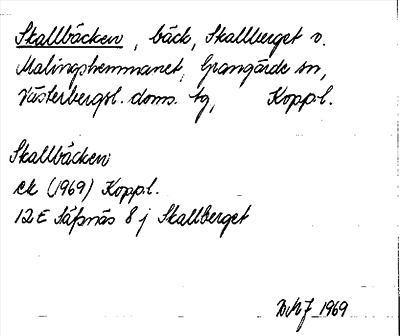 Skallbäcken, bäck, Skallberget v.
Malingshemmanet, Grangärde sn,
Västerbergsl. doms. tg, Koppl.
Skallbäcken
ek (1969) Koppl.
12E Säfsnäs 8 j Skallberget
1969